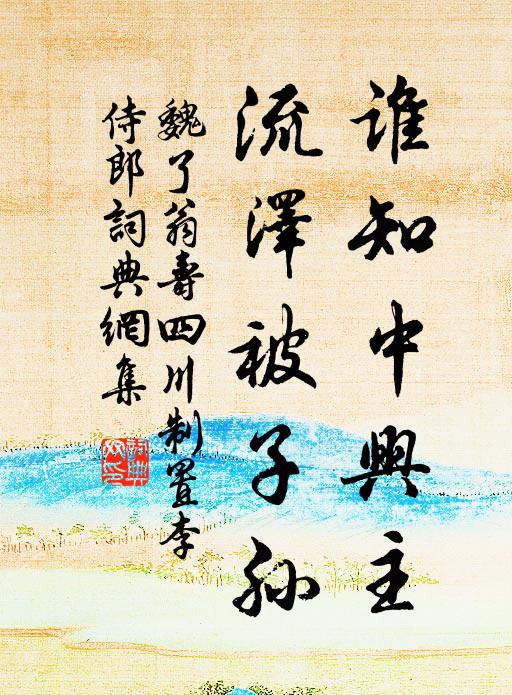 誰知中興主
流澤被子孫
魏了翁壽四川制置李
侍郎詞典網集